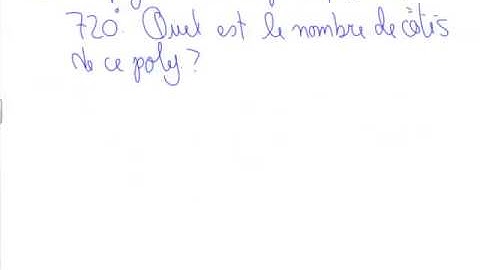 720°. Quel est le nombre de côtés
de ce poly?